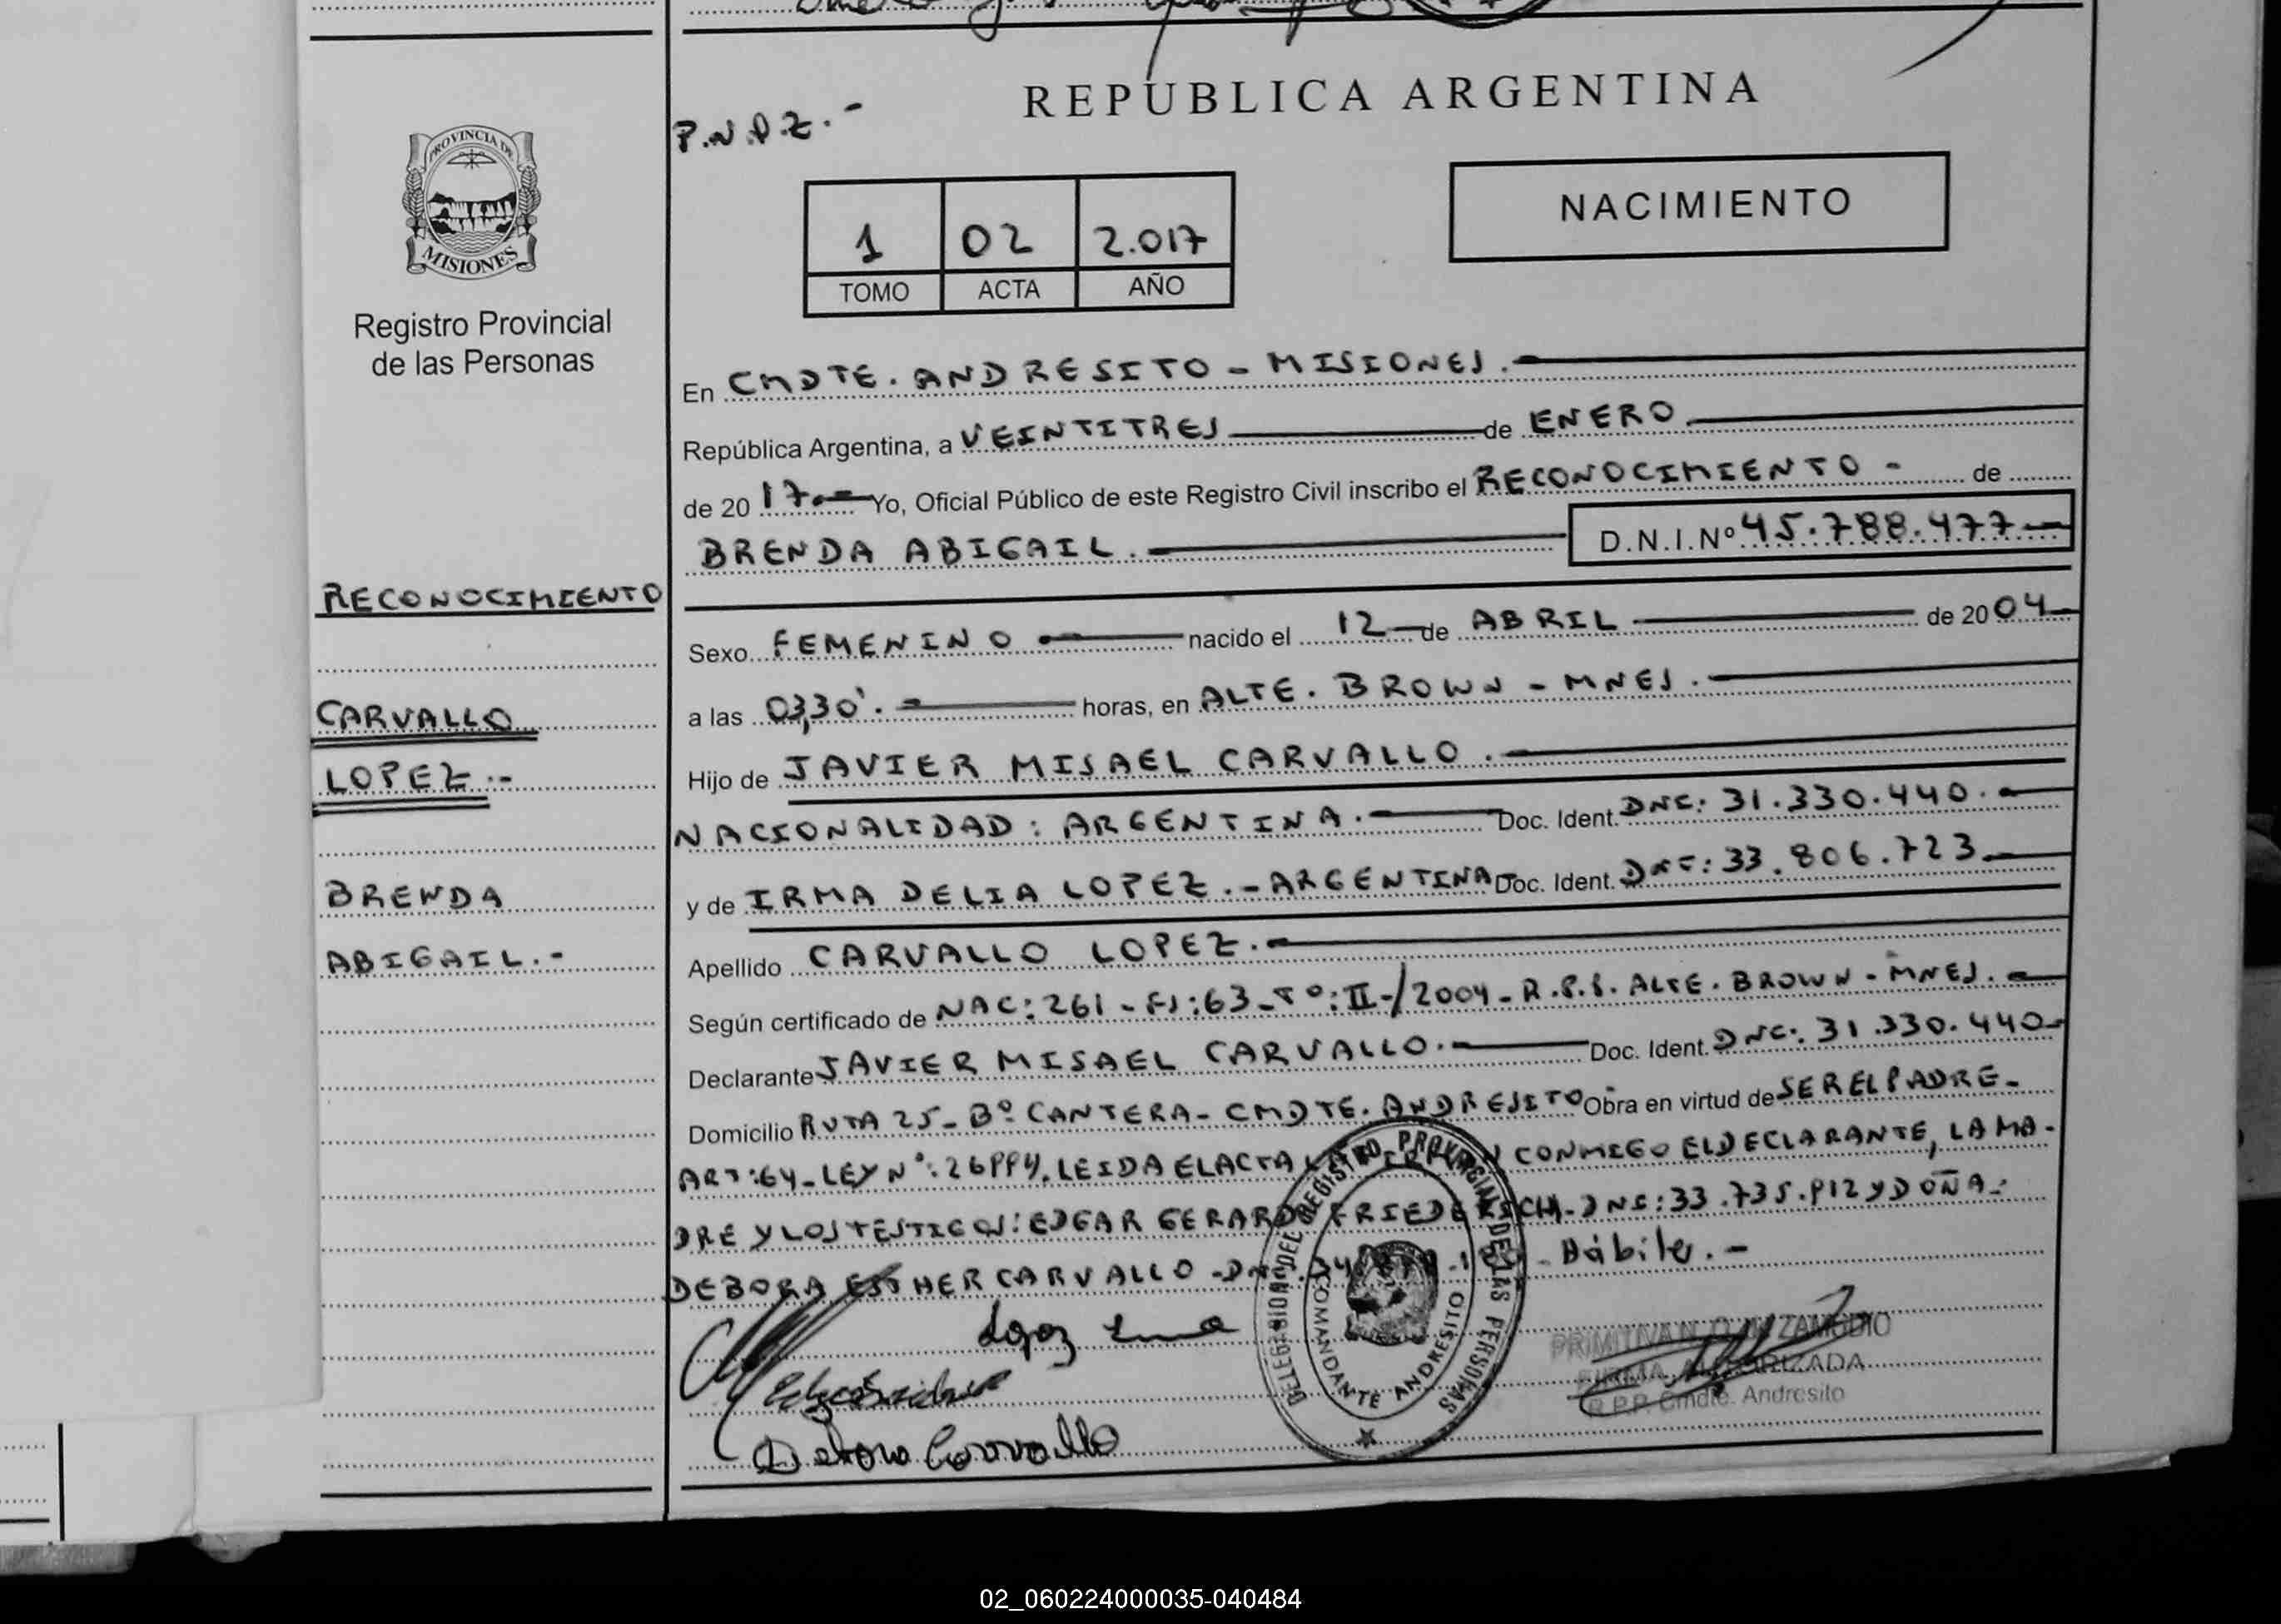 REPÚBLICA ARGENTINA
PROVINCIA DE
MISIONES
Registro Provincial
de las Personas
P.N.A.Z.-
1 02 2.017
TOMO ACTA AÑO
NACIMIENTO
En CMDTE. ANDRESITO - MISIONES.
República Argentina, a VEINTITRES de ENERO
de 20 17.- Yo, Oficial Público de este Registro Civil inscribo el RECONOCIMIENTO - de
BRENDA ABIGAIL. D.N.I.Nº 45.788.477
RECONOCIMIENTO
Sexo FEMENINO nacido el 12 de ABRIL de 20 04
CARVALLO
a las 03,30'. horas, en ALTE. BROWN - MNES.
LOPEZ.-
Hijo de JAVIER MISAEL CARVALLO.
NACIONALIDAD: ARGENTINA. Doc. Ident. DNI: 31.330.440.
BRENDA
y de IRMA DELIA LOPEZ.- ARGENTINA Doc. Ident. DNI: 33.806.723
ABIGAIL.-
Apellido CARVALLO LOPEZ.
Según certificado de NAC: 261 - FJ: 63 - Tº: II -/2004 - R.P.P. ALTE. BROWN - MNES.
Declarante JAVIER MISAEL CARVALLO. Doc. Ident. DNI: 31.330.440
Domicilio RUTA 25 - Bº CANTERA - CMDTE. ANDRESITO Obra en virtud de SER EL PADRE -
ART: 64 - LEY Nº: 26994. LEIDA EL ACTA CONMIGO EL DECLARANTE, LA MA-
DRE Y LOS TESTIGOS: EDGAR GERARDO FRIEDERICH - DNI: 33.735.912 Y DOÑA:
DEBORA ESTHER CARVALLO - Hábiles.-
Lopez Irma
Debora Carvallo
DELEGACION DEL REGISTRO PROVINCIAL DE LAS PERSONAS
COMANDANTE ANDRESITO
ZAMUDIO
FIRMA AUTORIZADA
R.P.P. Cmdte. Andresito
02_060224000035-040484